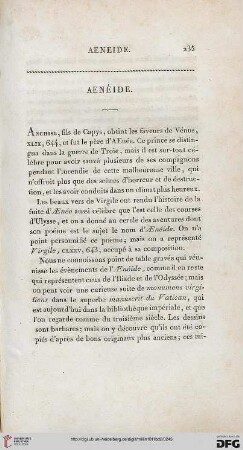 AENEIDE. 235
AENÉIDE.
ANCHISE, fils de Capys, obtint les faveurs de Vénus,
XLIX, 644, et fut le père d'AEnée. Ce prince se distin-
gua dans la guerre de Troie, mais il est sur-tout cé-
lèbre pour avoir sauvé plusieurs de ses compagnons
pendant l'incendie de cette malheureuse ville, qui
n'offroit plus que des scènes d'horreur et de destruc-
tion, et les avoir conduits dans un climat plus heureux.
Les beaux vers de Virgile ont rendu l'histoire de la
fuite d'Ænée aussi célèbre que l'est celle des courses
d'Ulysse, et on a donné au cercle des aventures dont
son poème est le sujet le nom d'Ænéide. On n'a
point personnifié ce poème; mais on a représenté
Virgile, 643, occupé à sa composition.
Nous ne connoissons point de table gravée qui réu-
nisse les événements de l'Ænéide, comme il en reste
qui représentent ceux de l'Iliade et de l'Odyssée; mais
on peut voir une curieuse suite de monumens virgi-
liens dans le superbe manuscrit du Vatican, qui
est aujourd'hui dans la bibliothèque impériale, et que
l'on regarde comme du troisième siècle. Les dessins
sont barbares; mais on y découvre qu'ils ont été co-
piés d'après de bons originaux plus anciens; ces mi-